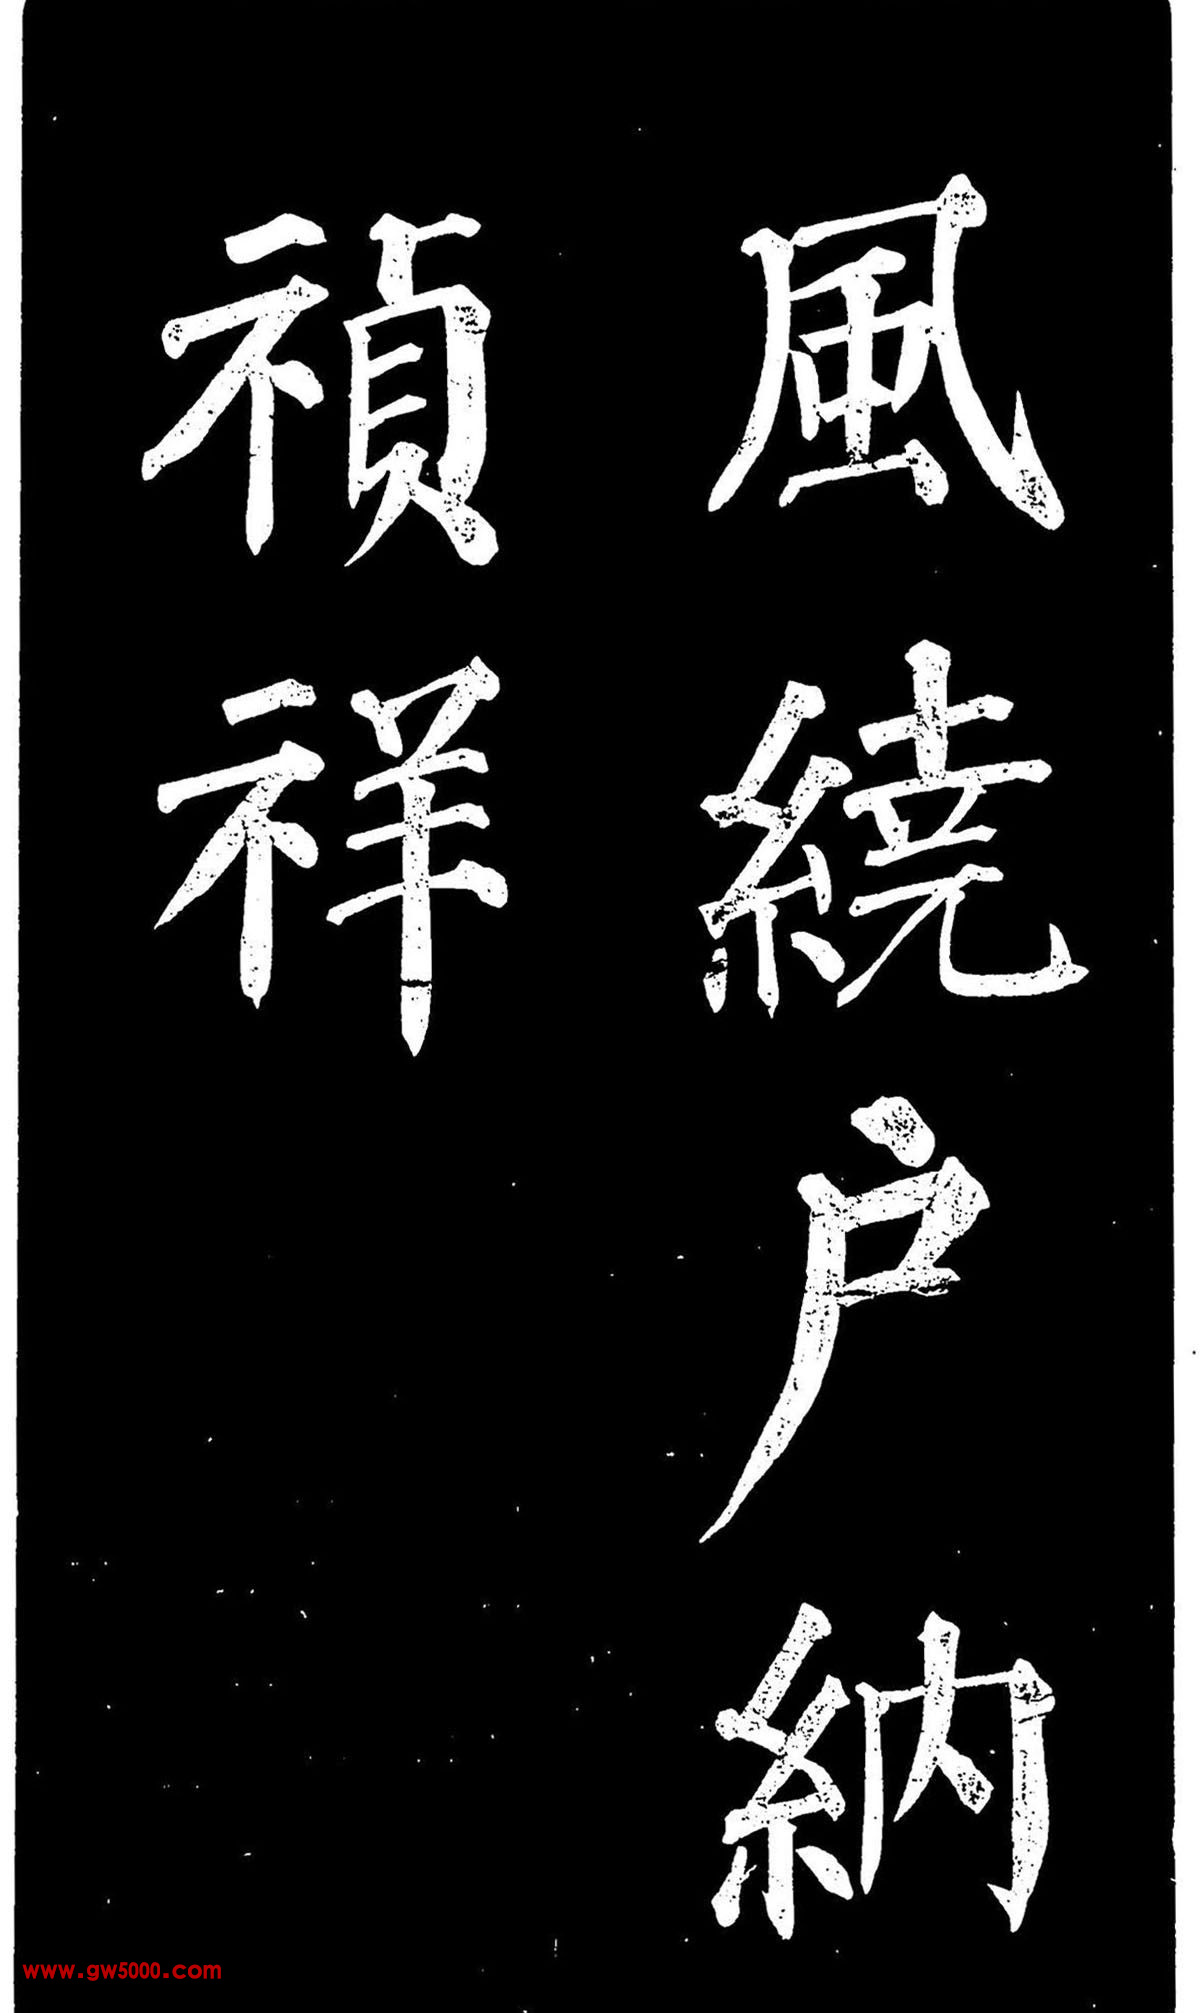 風繞户納
禎祥
www.gw5000.com